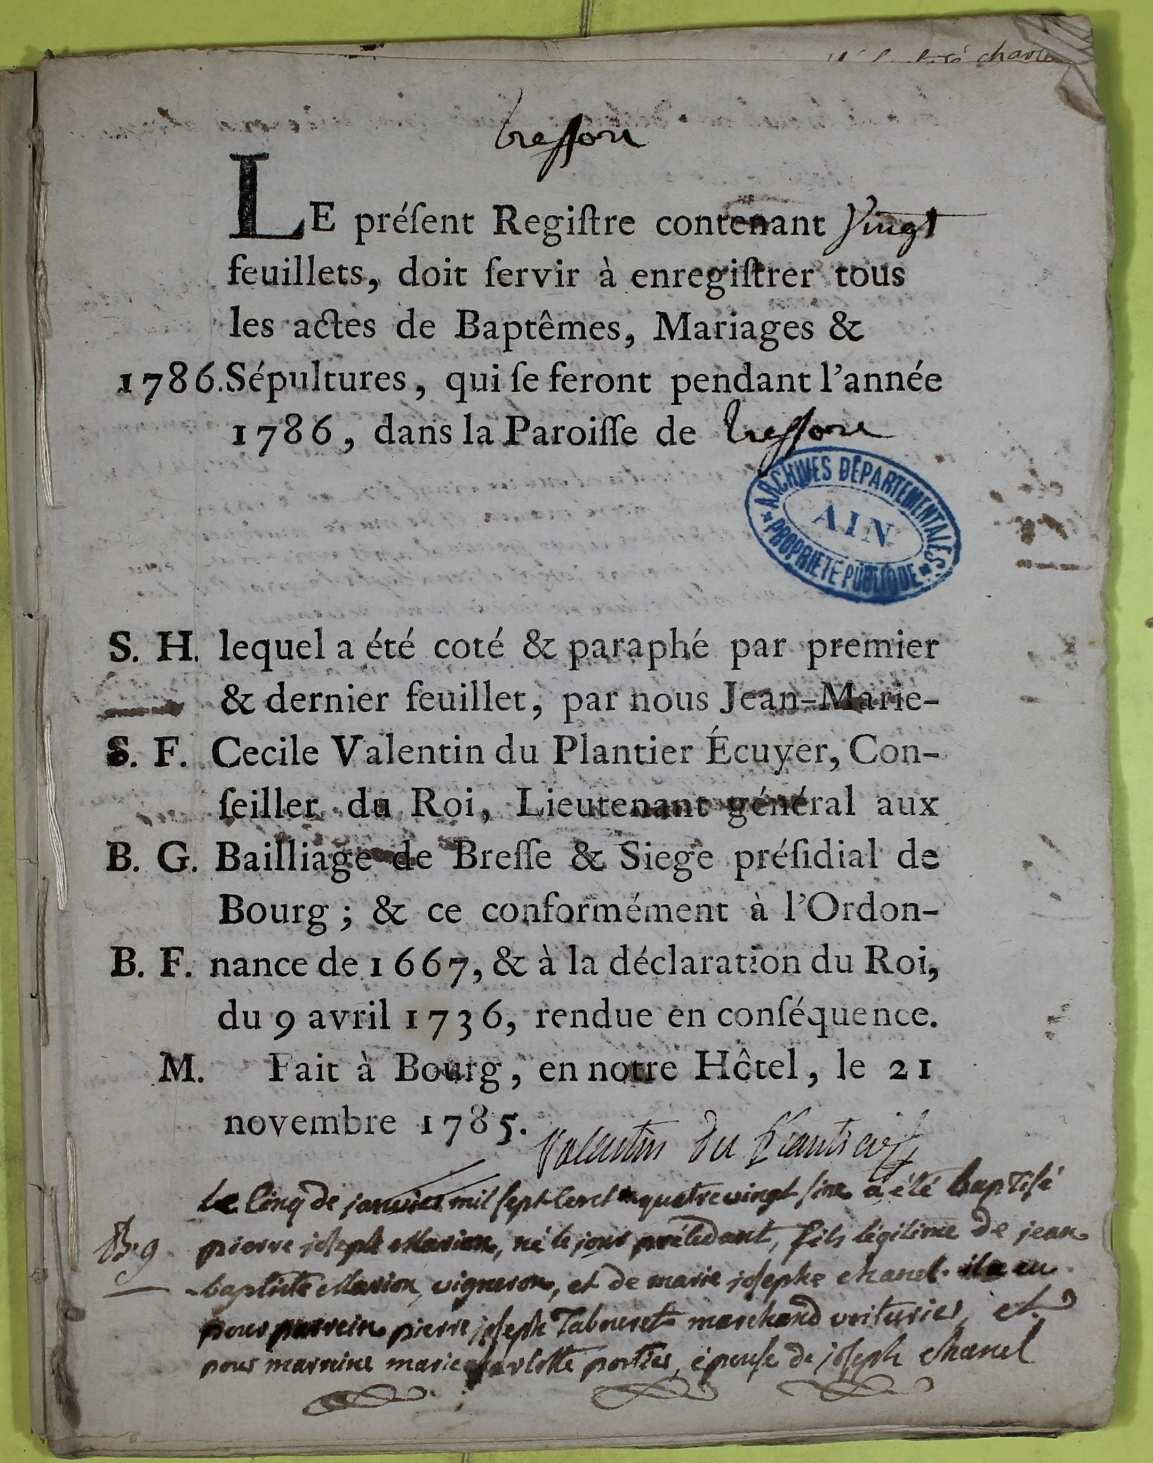 charle
tresson
LE préſent Regiſtre contenant Vingt
feuillets, doit ſervir à enregiſtrer tous
les actes de Baptêmes, Mariages &
1786. Sépultures, qui ſe feront pendant l'année
1786, dans la Paroiſſe de tresson
ARCHIVES DÉPARTEMENTALES
AIN
PROPRIÉTÉ PUBLIQUE
S. H. lequel a été coté & paraphé par premier
& dernier feuillet, par nous Jean-Marie-
S. F. Cecile Valentin du Plantier Écuyer, Con-
ſeiller du Roi, Lieutenant général aux
B. G. Bailliage de Breſſe & Siege préſidial de
Bourg ; & ce conformément à l'Ordon-
B. F. nance de 1667, & à la déclaration du Roi,
du 9 avril 1736, rendue en conſéquence.
M. Fait à Bourg, en notre Hôtel, le 21
novembre 1785. Valentin du Plantier
Le Cinq de janvier mil sept Cent quatrevingt six a été baptisé
B. g. pierre joseph Marion, né le jour précédant, fils légitime de jean
baptiste Marion vigneron, et de marie josephe chanel. il a eu
pour parrein pierre joseph Tabouret marchand voiturier, et
pour marraine marie charlotte portier, épouse de joseph chanel